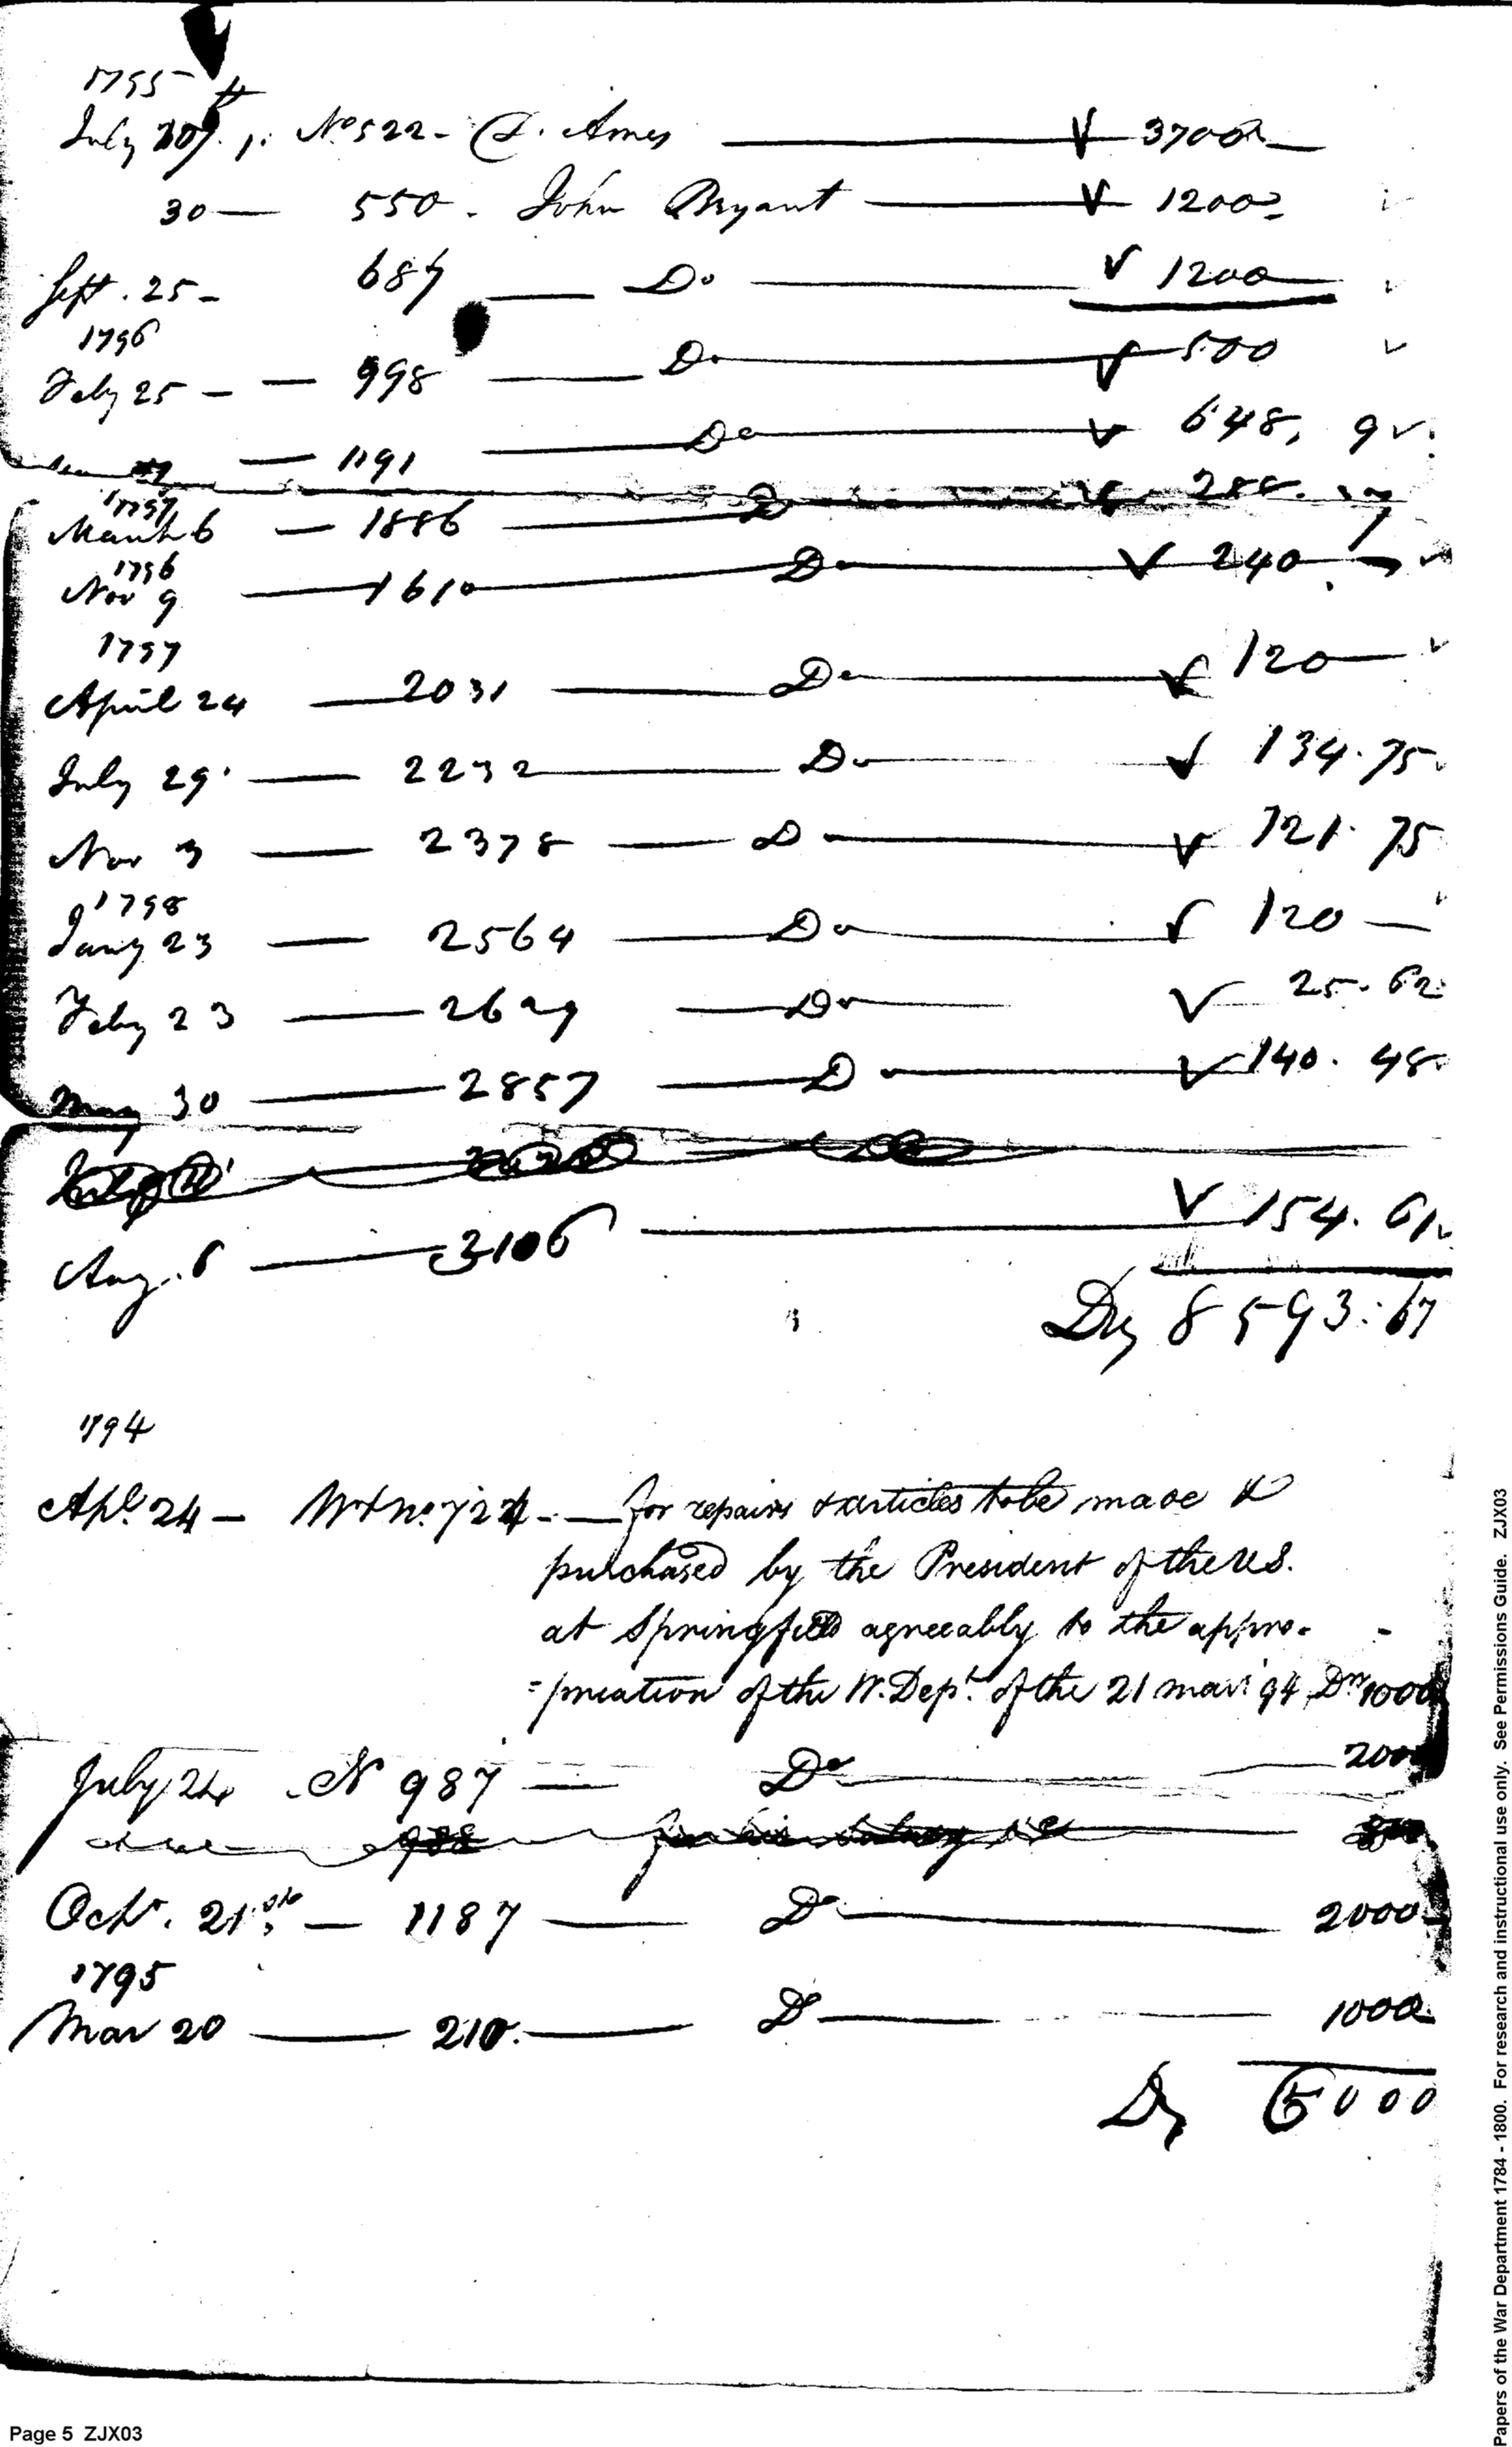 1795
July 20. No 522 - D. Ames 3700
30 — 550. John Bryant 1200
Sept. 25 - 687 — Do 1200
1796
Feby 25 — — 998 — Do 500
— 1191 — Do 648, 9
1797
March 6 — 1886 — Do 288.
1796
Nov 9 — 1610 — Do 240
1797
April 24 — 2031 — Do 120 —
July 29 — 2232 — Do 134.75
Nov 3 — 2378 — Do 121.75
1798
Jany 23 — 2564 — Do 120 —
Feby 23 — 2629 — Do 25.62
May 30 — 2857 — Do 140.48
Aug. 6 — 3106 — 154.61
Drs 8593.67
1794
Apl. 24 — Wt no. 724 — for repairs & articles to be made &
purchased by the President of the U.S.
at Springfield agreeably to the appro-
=priation of the W. Dept. of the 21 mar: 94 Drs 1000
July 24 - N 987 — Do — 2000
988 for his salary
Octr. 21st — 1187 — Do — 2000
1795
Mar 20 — 210. — Do — 1000
Ds 6000
Page 5 ZJX03
Papers of the War Department 1784 - 1800. For research and instructional use only. See Permissions Guide. ZJX03